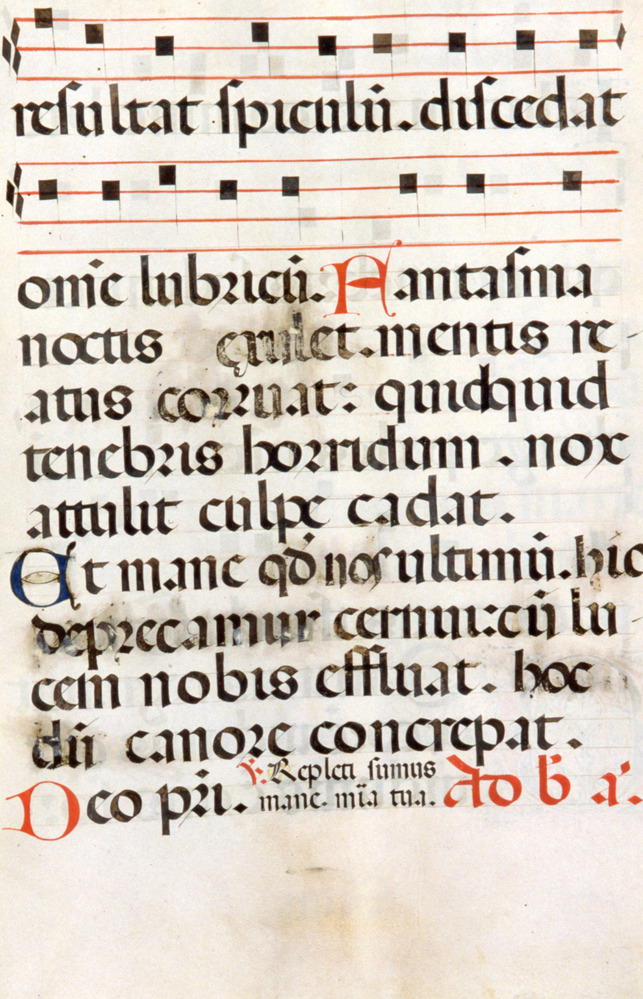 resultat spiculū. discedat
om̄e lubricū. Fantasma
noctis exulet. mentis re-
atus corruat: quidquid
tenebris horridum. nox
attulit culpe cadat.
Et mane qđ nos ultimū. hic
deprecamur cernui: cū lu-
cem nobis effluat. hoc
dū canore concrepat.
Deo pr̄i. ℣. Repleti sumus
mane. mīa tua. Ad b̄ a.